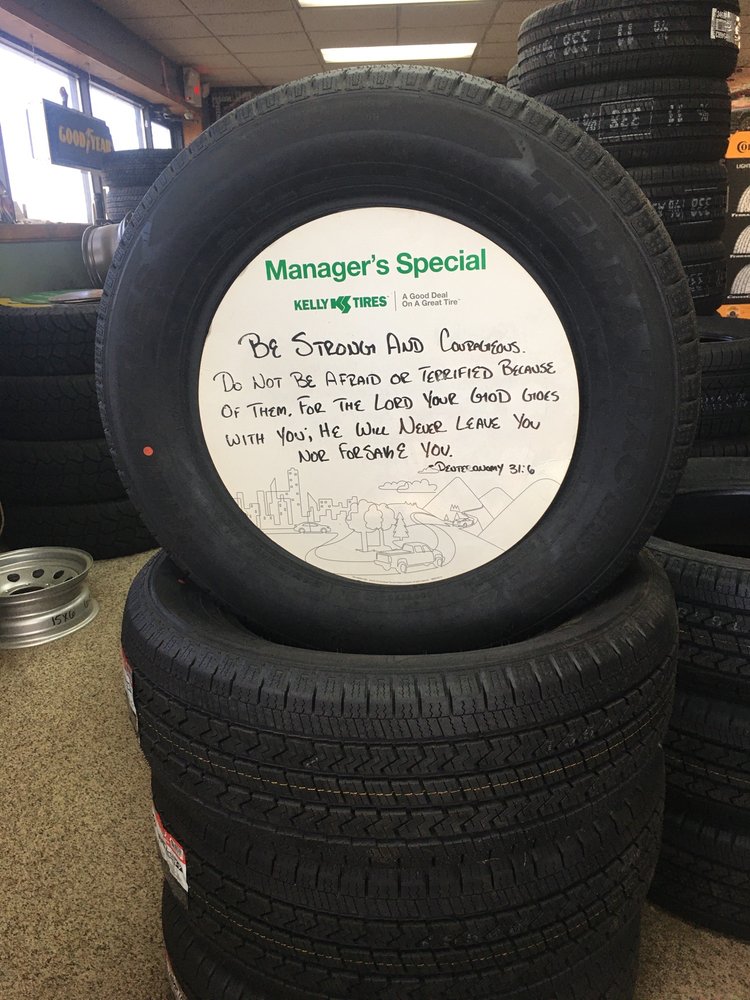 GOODYEAR
Manager's Special
KELLY TIRES
A Good Deal
On A Great Tire
BE STRONG AND COURAGEOUS.
DO NOT BE AFRAID OR TERRIFIED BECAUSE
OF THEM, FOR THE LORD YOUR GOD GOES
WITH YOU; HE WILL NEVER LEAVE YOU
NOR FORSAKE YOU.
-DEUTERONOMY 31:6
15X6